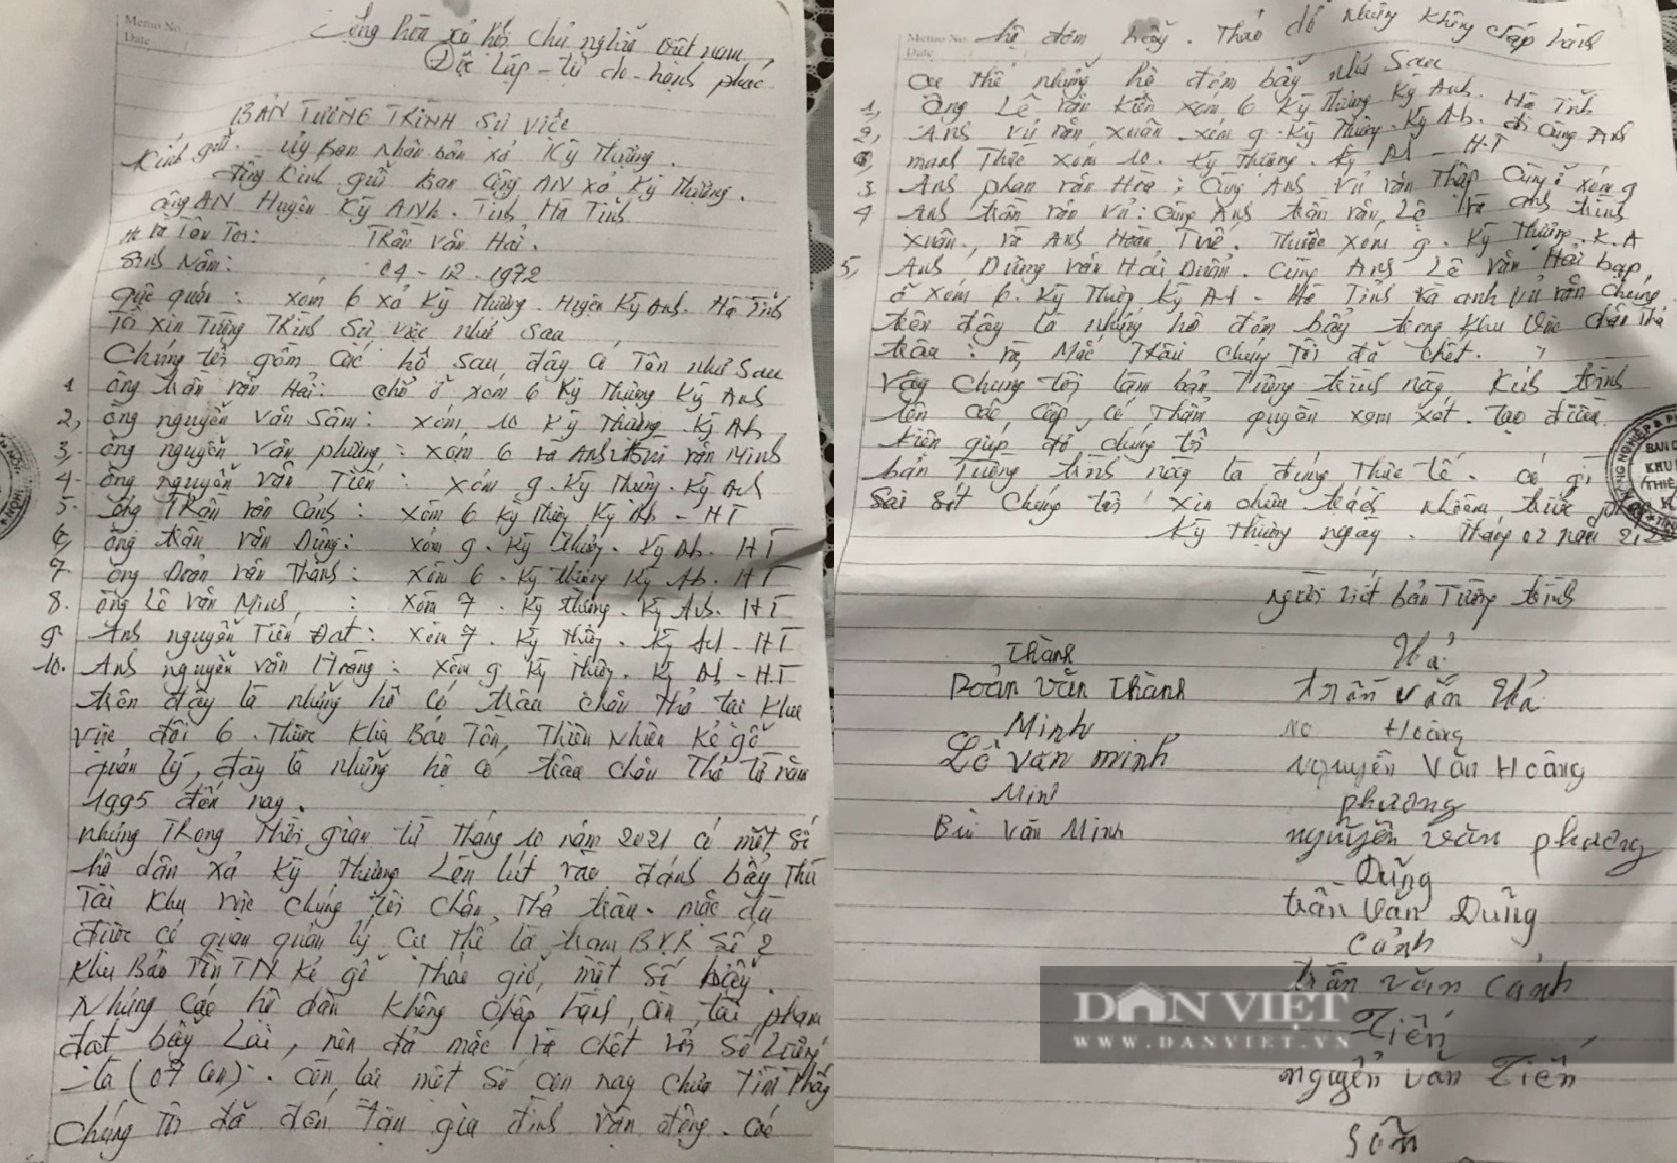 Memo No.
Date
Cộng hòa xả hội chủ nghĩa việt nam
Độc lập - tự do - hạnh phúc
BẢN TƯỜNG TRÌNH Sự việc
Kính gửi. ủy Ban nhân dân xả Kỳ Thượng.
đồng kính gửi Ban Công AN xả Kỳ Thượng.
công AN Huyện Kỳ ANh. Tỉnh Hà Tĩnh
Họ và Tên Tôi: Trần Văn Hải.
Sinh Năm: 04-12-1972
quê quán: xóm 6 xả Kỳ Thượng. Huyện Kỳ Anh. Hà Tĩnh
Tôi xin Tường Trình Sự việc như Sau
Chúng tôi gồm các hộ Sau đây có Tên như Sau
1 ông trần văn Hải: chổ ở xóm 6 Kỳ Thượng Kỳ Anh
2, ông nguyễn Văn Sâm: xóm 10 Kỳ Thượng Kỳ Ah
3, ông nguyễn Văn phường: xóm 6 và Anh văn Minh
4- ông nguyễn Văn Tiến: xóm 9. Kỳ Thượng. Kỳ Ah
5- ông Trần văn Cảnh: xóm 6 Kỳ Thượng Kỳ Ah - HT
6, ông trần văn Dũng: xóm 9. Kỳ Thượng. Kỳ Ah. HT
7 ông Đoản văn Thành: xóm 6. Kỳ Thượng Kỳ Ah. HT
8. ông Lê văn Minh: xóm 7. Kỳ Thượng. Kỳ Anh. HT
9. Anh nguyễn Tiến Đạt: xóm 7. Kỳ Thượng. Kỳ Ah - HT
10. Anh nguyễn văn Hoàng: xóm 9 Kỳ Thượng. Kỳ Ah - H.T
trên đây là những hộ có trâu chăn thả tại khu
vực đội 6. Thuộc khu Bảo Tồn Thiên Nhiên Kẻ gỗ
quản lý, đây là những hộ có trâu chăn Thả từ năm
1995 đến nay.
nhưng Trong thời gian từ tháng 10 năm 2021 có một số
hộ dân xả Kỳ Thượng Lén lút vào đánh bẩy Thú
Tại khu vực chúng tôi chăn Thả trâu. mặc dù
được cơ quan quản lý Cụ thể là trạm BVR số 2
khu Bảo Tồn TN Kẻ gỗ Tháo gỡ, một số bẩy.
Nhưng các hộ dân không chấp hành, còn tái phạm
đặt bẩy Lại, nên đả mắc và chết với số Lượng
là (07 con). còn lại một số con nay chưa Tìm thấy
chúng Tôi đã đến tận gia đình vận động. các
Memo No.
Date
hộ đơm bẩy. Tháo dỡ Nhưng không chấp hành
cụ thể những hộ đơm bẩy như Sau
1, ông Lê văn Kiên xóm 6 Kỳ Thượng Kỳ Anh. Hà Tĩnh
2, Anh văn xuân xóm 9. Kỳ Thượng. Kỳ Ah. đi Cùng Anh
mạnh Thức xóm 10. Kỳ Thượng. Kỳ Ah - H.T
3 Anh phan văn Hòa; Cùng Anh văn Thập cùng ở xóm 9
4 Anh trần văn vũ: cùng Anh trần văn Lê và anh trình
xuân, và Anh Hoàn Tuế. Thuộc xóm 9. Kỳ Thượng. K.A
5, Anh Dương văn Hải Duẩn. Cùng Anh Lê văn Hải
ở xóm 6. Kỳ Thượng Kỳ Ah - Hà Tĩnh và anh văn chung
trên đây là những hộ đơm bẩy trong khu vực chăn thả
trâu: và Mắc Trâu chúng Tôi đả chết.
Vậy chúng tôi làm bản Tường trình này Kính trình
lên các cấp có thẩm quyền xem xét. tạo điều
kiện giúp đỡ chúng tôi
bản Tường trình này là đúng Thực tế. có gì
sai sót chúng tôi xin chịu trách nhiệm trước
Kỳ Thượng ngày . Tháng 02 năm
người viết bản Tường trình
Thành
Đoản Văn Thành
Minh
Lê Văn minh
Minh
Bùi Văn Minh
trần văn
Hoàng
Nguyễn Văn Hoàng
phương
nguyễn văn phương
Dũng
trần Văn Dũng
Cảnh
trần văn Cảnh
Tiến
nguyễn Văn Tiến
DÂN VIỆT
WWW.DANVIET.VN